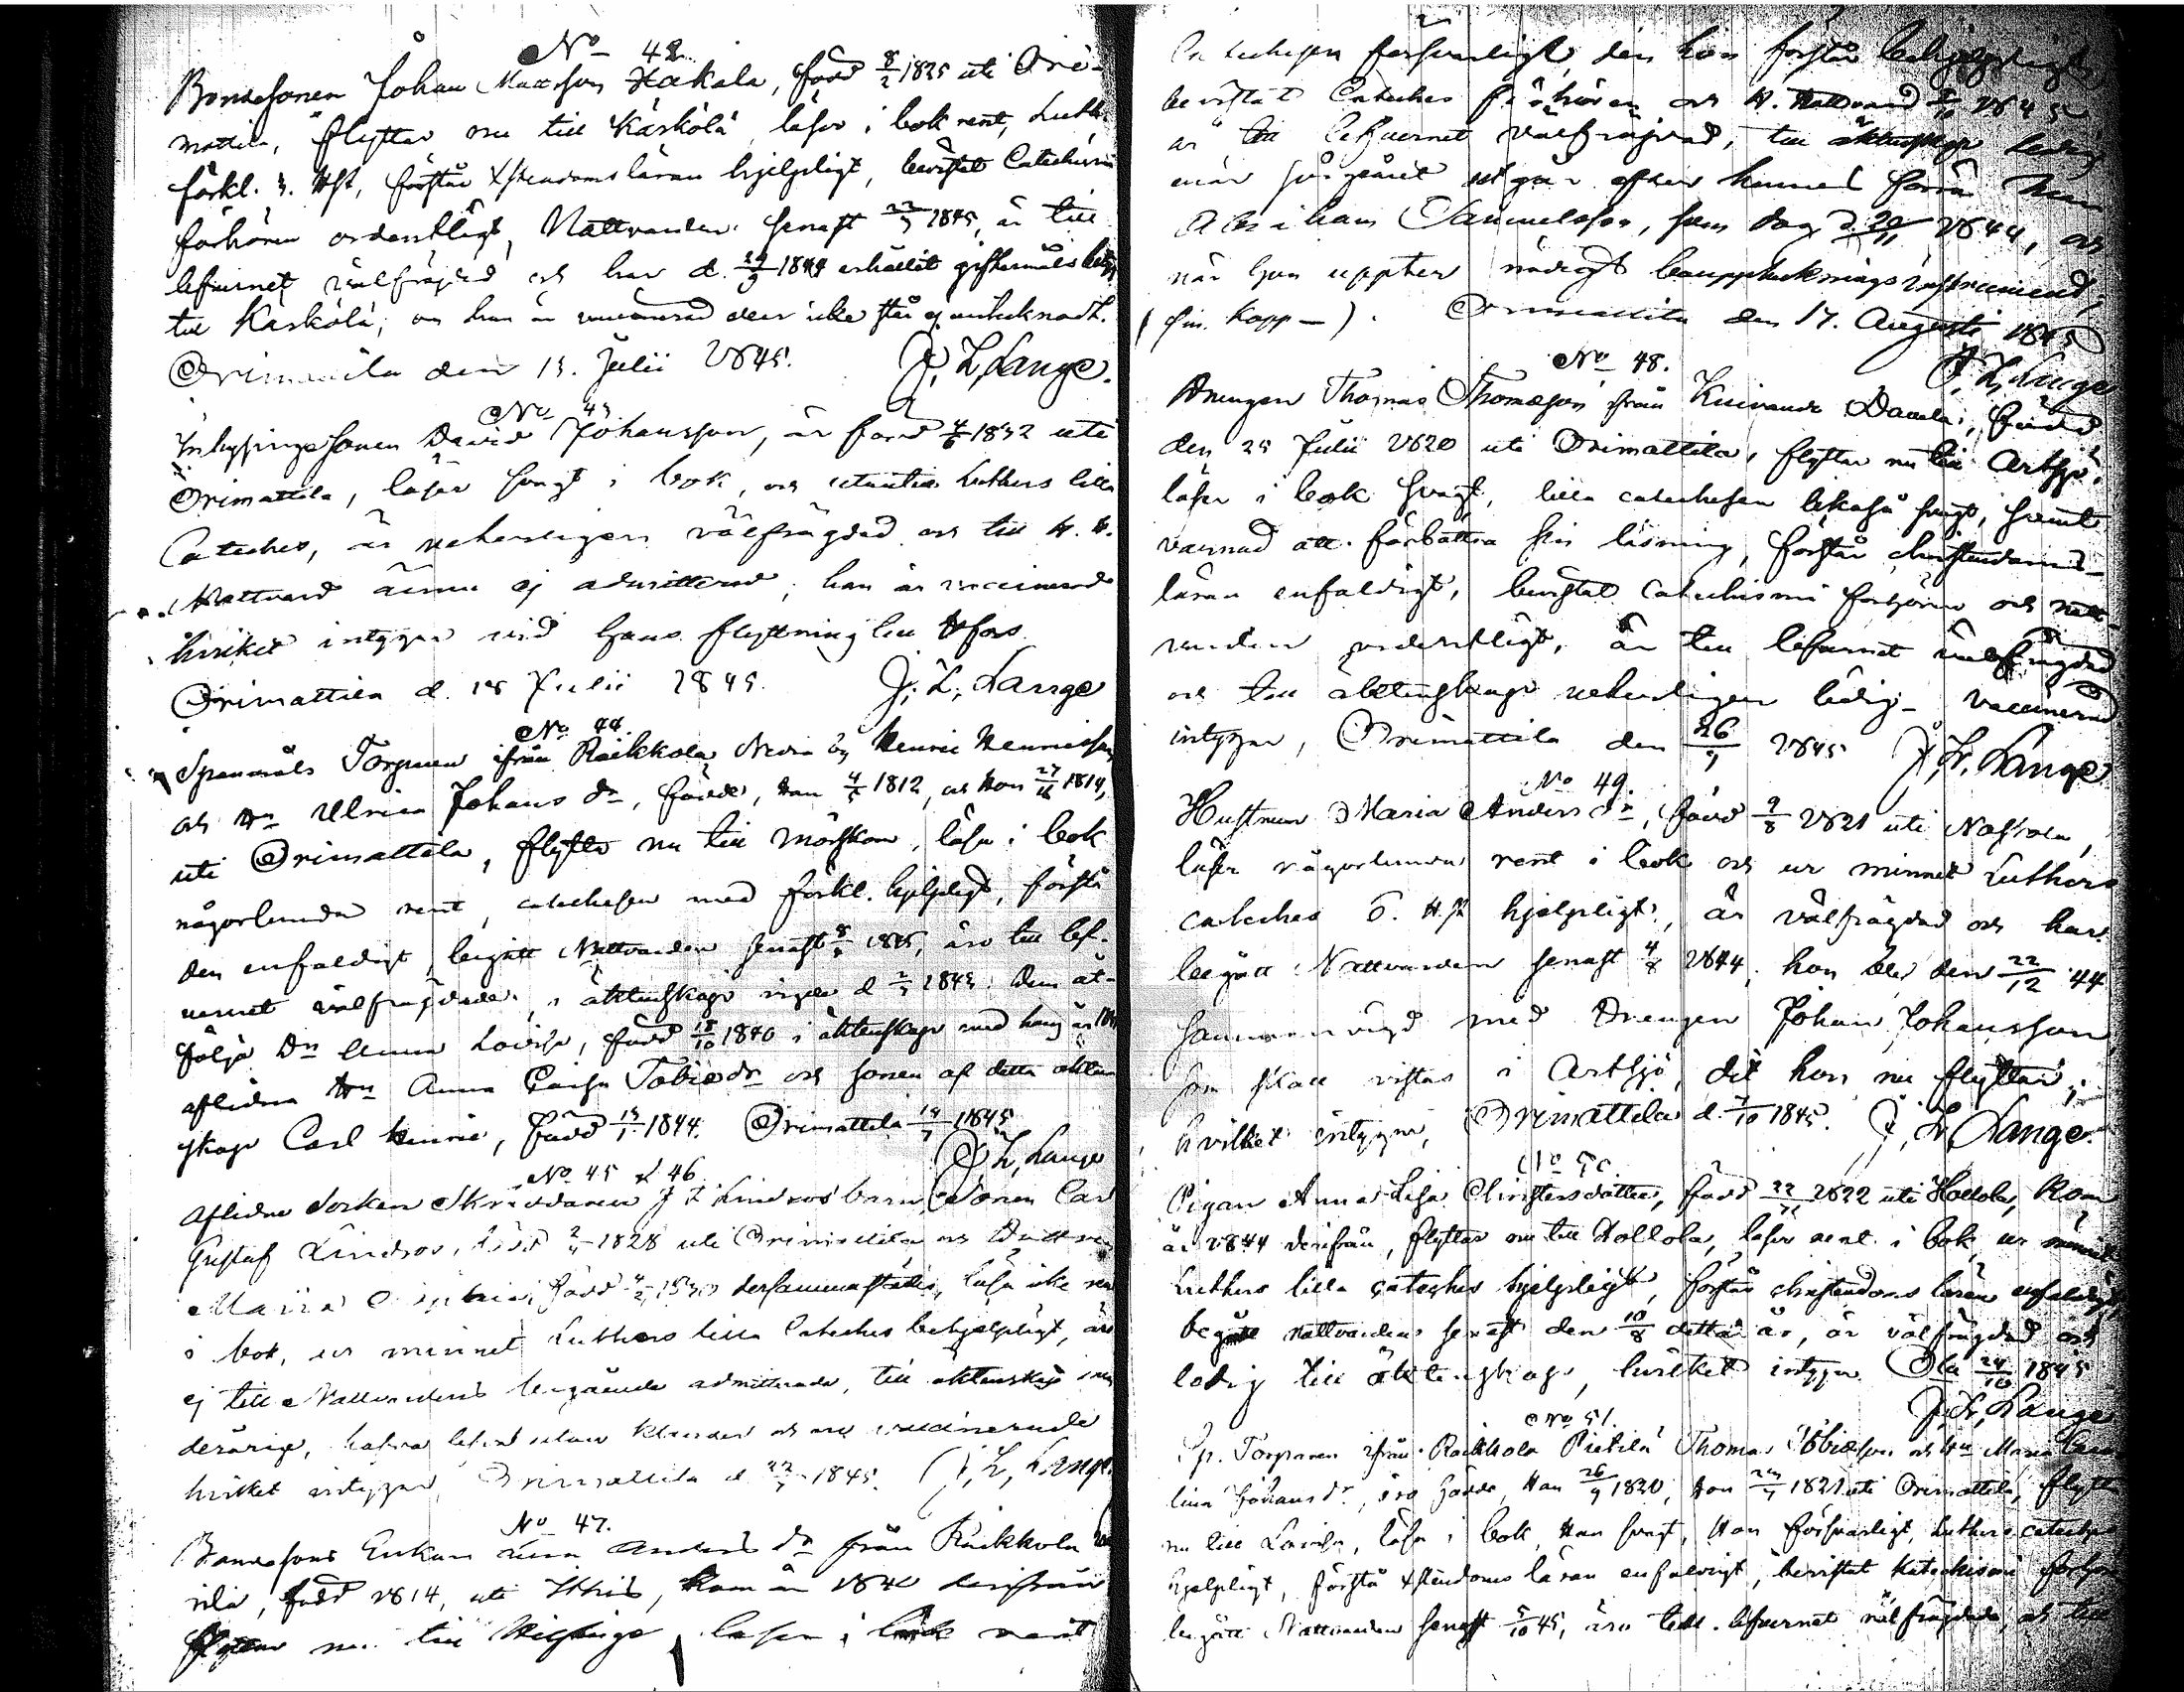 No 42.
Bondesonen Johan Mattsson Hakala, född 8/2 1825 uti Ori-
mattila, flyttar nu till Kärkölä, läser i bok rent, Luth.
förkl. H. Sft, förstår Xstendomsläran hjelpligt, bevistat Catechismi
förhören ordentligt, Nattvarden senast 1845, är till
lefvernet välfrägdad och har d. 1844 erhållit giftermåls betyg
till Kärkölä; om han är vaccinerad eller icke står ej antecknadt.
Orimattila den 13. Julii 1845. J. L. Lange.
No 43.
Inhysinge Sonen David Johansson, är född 1832 uti
Orimattila, läser svagt i bok, och utantill Luthers lilla
Cateches, är veterligen välfrägdad och till H. H.
Nattvard ännu ej admitterad; han är vaccinerad
hvilket intygar vid hans flyttning till Hfors.
Orimattila d. 18 Julii 1845. J. L. Lange
No 44.
Spanmåls Torparen ifrån Räikkola Henric Henricsson
och Hu Ulrica Johans dr, födde, Han 4/5 1812, och Hon 1814,
uti Orimattila, flytta nu till Mörskom, läsa i bok
någorlunda rent, catechesen med förkl. hjelpligt, förstå
den enfaldigt, begått Nattvarden senast 1845, äro till lef-
vernet välfrägdade, i äktenskap vigde d 1843. Dem åt-
följa Dr Anna Lovisa, född 18/10 1840 i äktenskap med hans år
aflidna Hu Anna Caisa Tobiedr och sonen af detta äkten
skap Carl Henric, född 1844. Orimattila 1845
J. L. Lange
No 45 & 46
Aflidne Socken Skräddaren J L Lindroos barn, Sonen Carl
Gustaf Lindroos, född 1828 uti Orimattila och Dottren
Maria född dersammastädes, läsa icke rent
i bok, ur minnet Luthers lilla Catches behjelpligt, äro
ej till Nattvardens begående admitterade, till äktenskap
derårige, hafva lefvat utan klander och äro vaccinerade
hvilket intygar, Orimattila d 1845. J. L. Lange
No 47.
Bondesons Enkan Anders dr från Räikkola
född 1814, uti Ithis, kom år 1840 derifrån
flyttar nu till läser i bok rent
Catechesen försvarligt, den hon förstår behjelpligt
bevistat Cateches förhören och H. Nattvard 1845
är till lefvernet välfrägdad, till äktenskap ledig
när sorgåret utgår efter hennes förra Man
Abraham Samuelsson, som dog d. 20/11 1844, och
när hon uppter nödigt bouppteckningsinstrument,
(sin. Kopp-). Orimattila den 17. Augusti 1845
J. L. Lange
No 48.
Drengen Thomas Thomasson från Kuivando Davela, född
den 25 Julii 1820 uti Orimattila, flyttar nu till Artsjö,
läser i bok svagt, lilla catechesen likaså svagt, samt
varnad att förbättra sin läsning, förstår christendoms-
läran enfaldigt, bevistat Catechismi förhören och natt-
varden ordentligt, är till lefvernet välfrägdad
och till äktenskap veterligen ledig - vaccinerad
intygar, Orimattila den 26/9 1845 J. L. Lange
No 49.
Hustrun Maria Anders dr, född 9/8 1821 uti Nastola,
läser någorlunda rent i bok och ur minnet Luthers
cateches o. H.ft hjelpligt, är välfrägdad och har
begått Nattvarden senast 4/8 1844; hon blef den 22/12 44
sammanvigd med Drengen Johan Johansson,
som skall vistas i Artsjö, dit hon nu flyttar;
hvilket intygar, Orimattila d. 7/10 1845. J. L. Lange.
No 50.
Pigan Anna Lisa Christersdotter, född 1822 uti Hollola, kom
år 1844 derifrån, flyttar nu till Hollola, läser rent i bok, ur minnet
Luthers lilla cateches hjelpligt, förstår christendoms läran enfaldigt,
begått nattvarden senast den 10/8 detta år, är välfrägdad och
ledig till äktenskap, hvilket intygar Ola 24/10 1845
J. L. Lange
No 51.
Sp. Torparen ifrån Räikkola Pietilä Thomas Tobiesson och Hu Maria
lina Johans dr, äro födde, Han 26/9 1820, Hon 1821 uti Orimattila, flytta
nu till Lovisa, läsa i bok, Han svagt, Hon försvarligt, Luthers cateches
hjelpligt, förstå Xstendoms läran enfaldigt, bevistat Katechismi förhör
begått Nattvarden senast 5/10 45, äro till lefvernet välfrägdade, och till